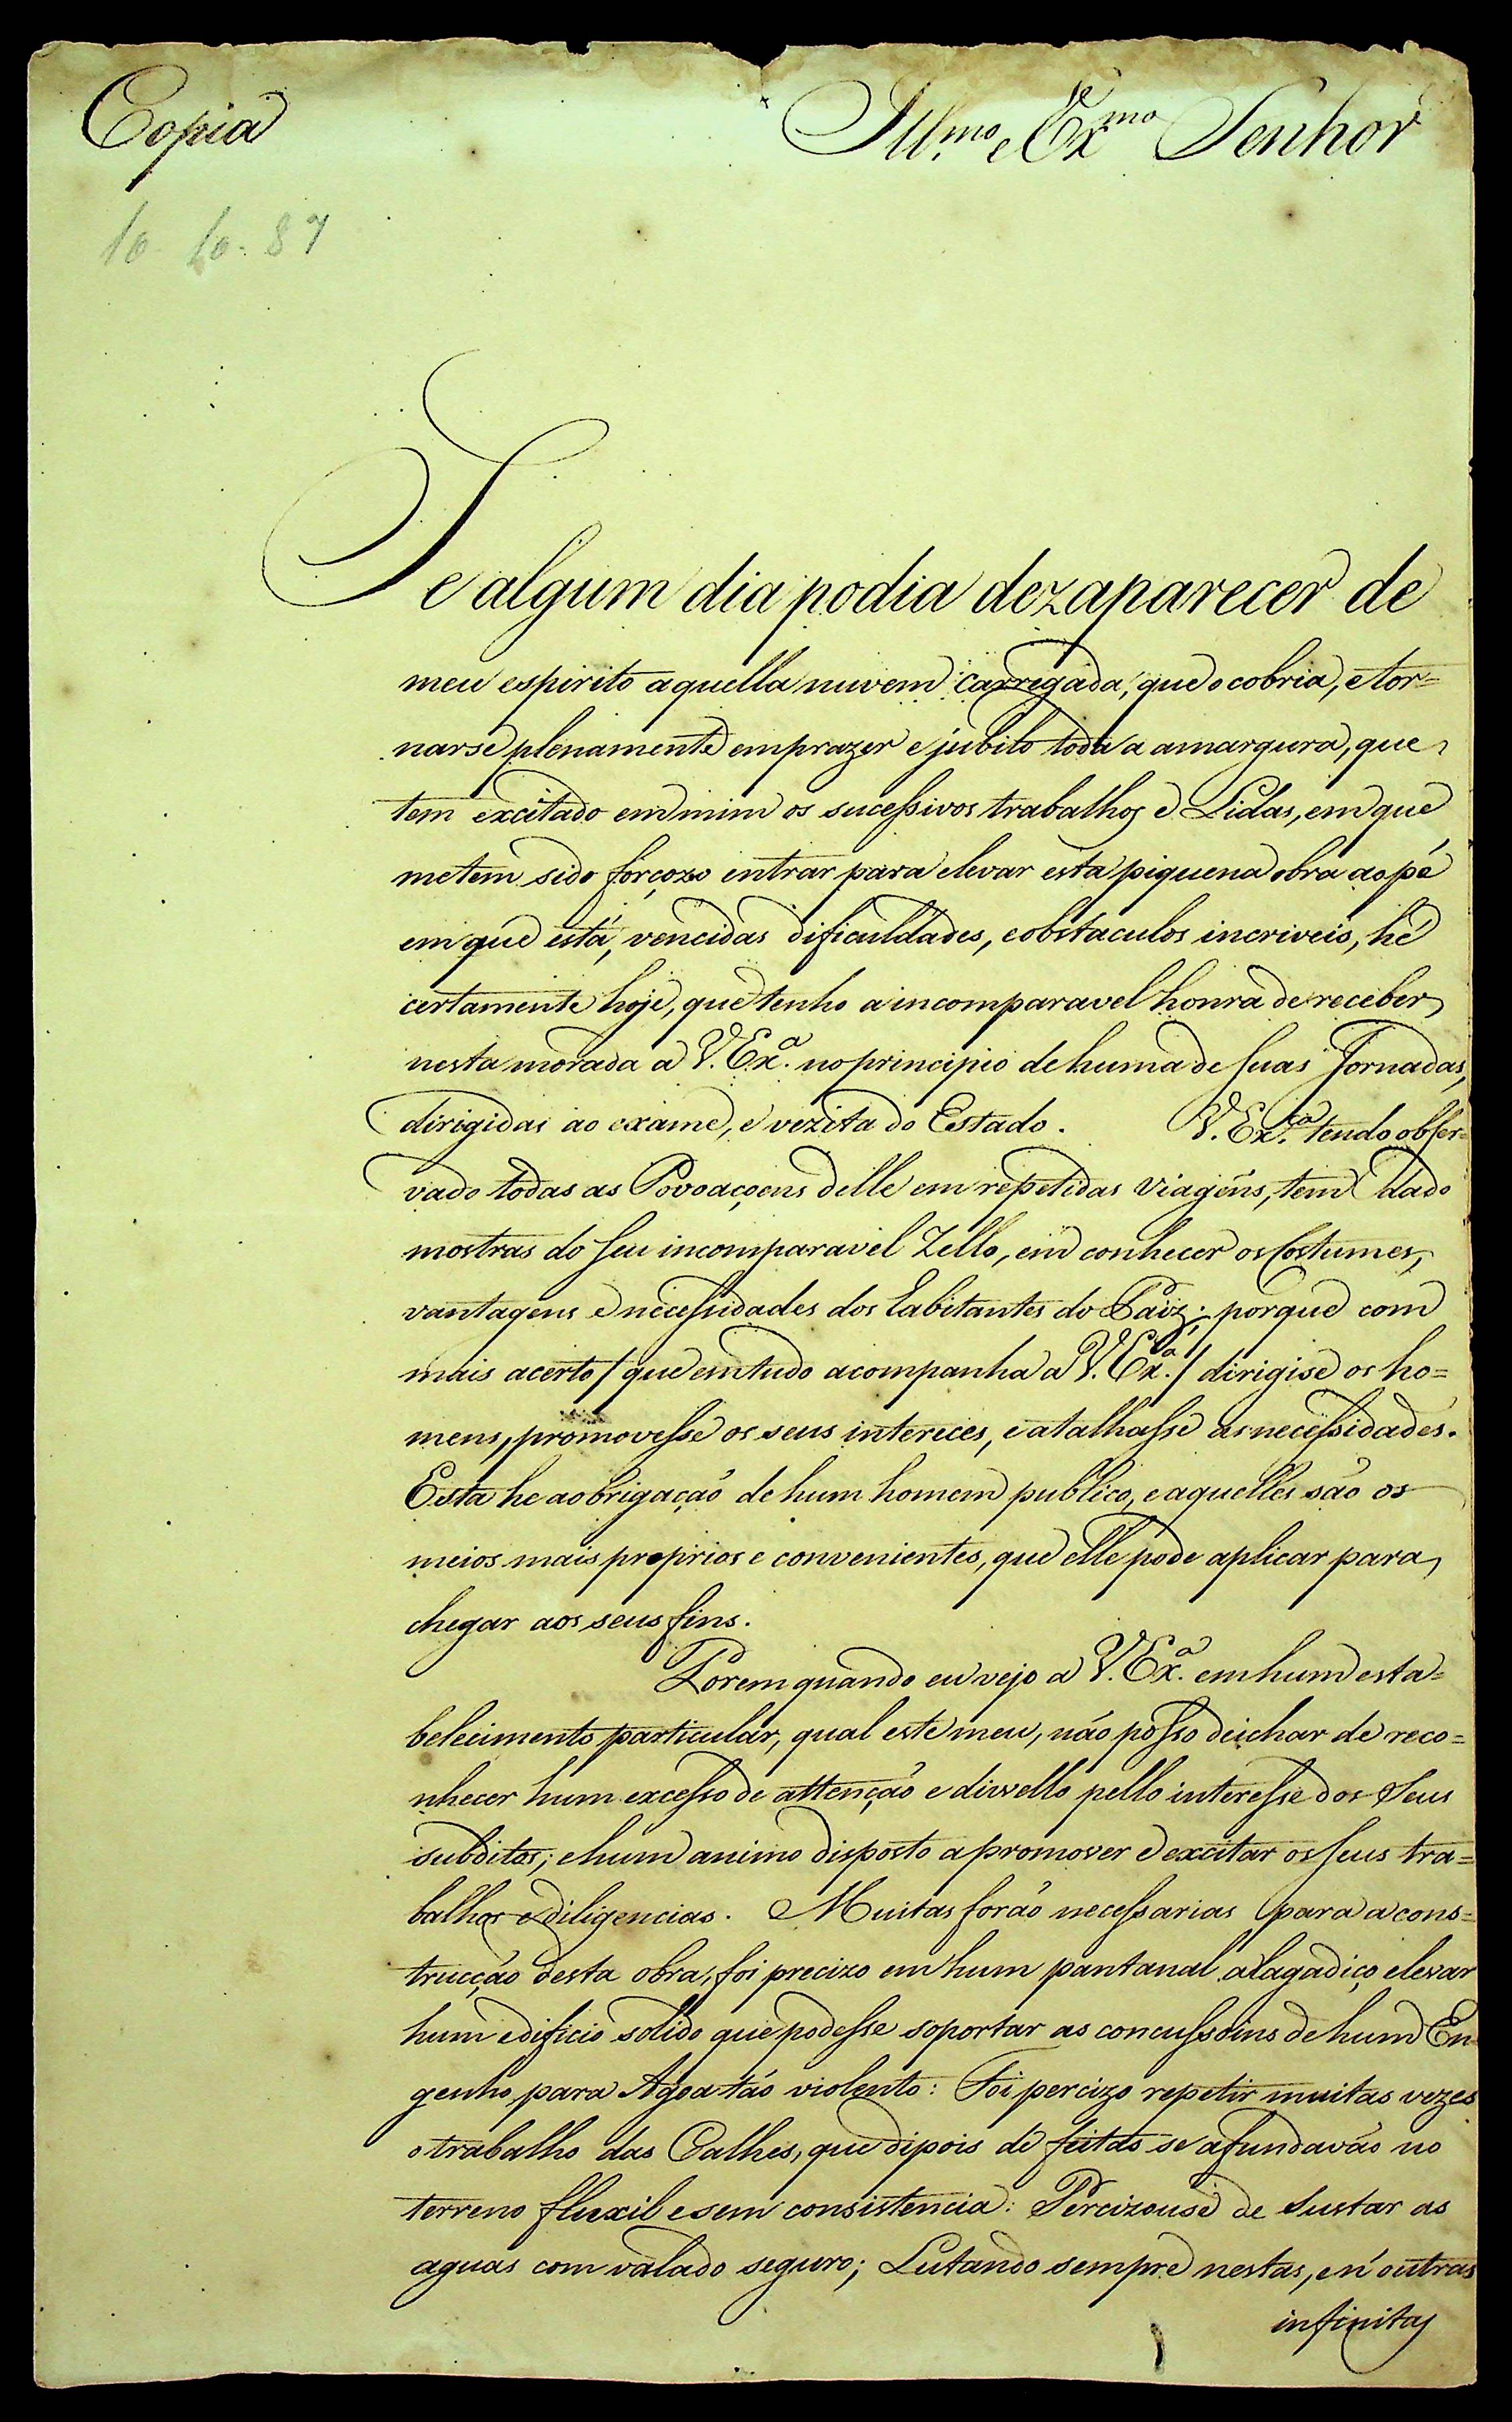 Copia
Ill.mo e Ex.mo Senhor
10. 10. 87
Se algum dia podia dezaparecer de
meu espirito aquella nuvem carregada, que o cobria, e tor=
narse plenamente em prazer e jubilo toda a amargura, que
tem excitado em mim os sucessivos trabalhos e Lidas, em que
me tem sido forçozo entrar para elevar esta piquena obra ao pé
em que está, vencidas dificuldades, e obstaculos incriveis, hé
certamente hoje, que tenho a incomparavel honra de receber
nesta morada a V. Ex.a no principio de huma de suas Jornadas,
dirigidas ao exame, e vezita do Estado. V. Ex.ca tendo obser=
vado todas as Povoaçoens delle em repetidas viagens, tem dado
mostras do seu incomparavel Zello, em conhecer os Costumes,
vantagens e necessidades dos habitantes do Paiz; porque com
mais acerto / que em tudo acompanha a V. Ex.a / dirigise os ho=
mens, promovesse os seus intereces, e atalhasse as necessidades.
Esta he a obrigação de hum homem publico, e aquelles são os
meios mais proprios e convenientes, que elle pode aplicar para
chegar aos seus fins.
Porem quando eu vejo a V. Ex.a em hum esta=
belecimento particular, qual este meu, não posso deichar de reco=
nhecer hum excesso de attenção e disvello pello interesse dos Seus
subditos; e hum animo disposto a promover e excitar os seus tra=
balhos e diligencias. Muitas forão necessarias para a cons=
trucção desta obra, foi precizo em hum pantanal alagadiço elevar
hum edificio solido que podesse soportar as concussoins de hum En=
genho para Agoa tão violento: Foi percizo repetir muitas vezes
o trabalho das Calhes, que dipois de feitas se afundavão no
terreno fluxil e sem consistencia: Percizouse de sustar as
aguas com valado seguro; Lutando sempre nestas, e n'outras
infinitas